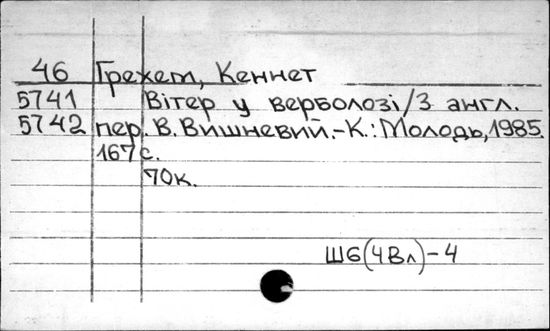 46 Грехем, Кеннет
5741 Вітер у верболозі/З англ.
5742 пер. В. Вишневий.-К.: Молодь, 1985.
167 с.
70к.
Ш6(4Вл)-4